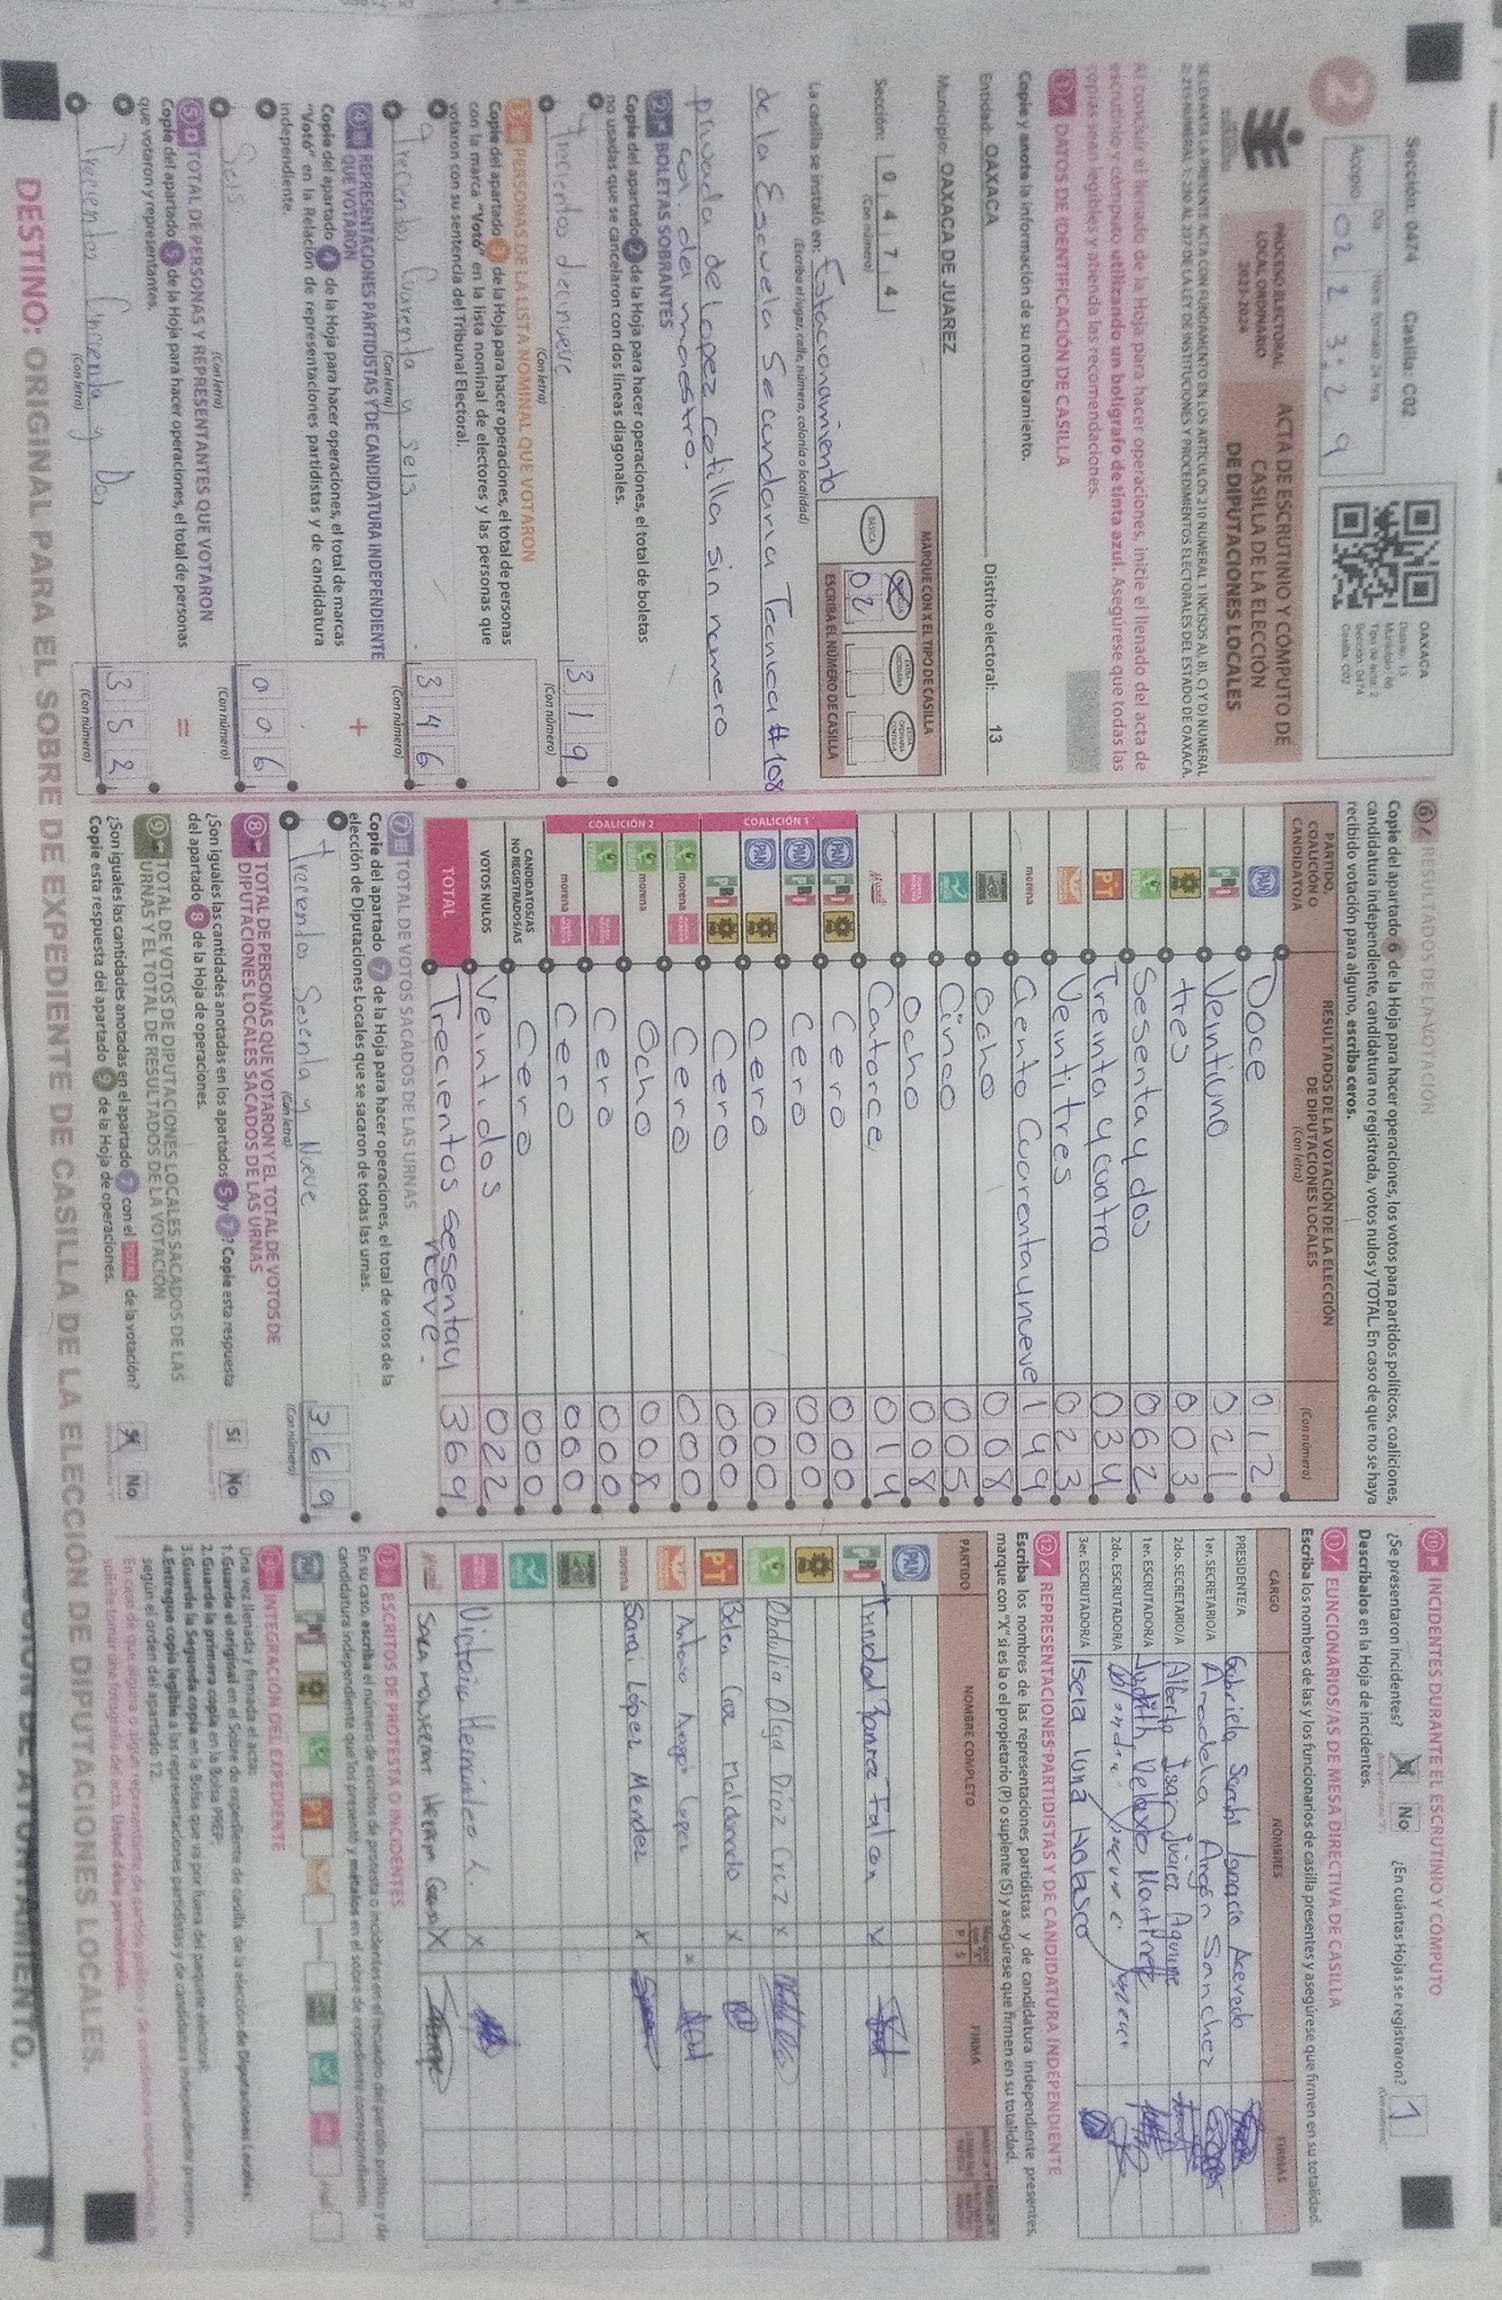 Sección: 0474 Casilla: C02
OAXACA
Distrito: 13
Municipio: 66
Tipo de acta: 2
Sección: 0474
Casilla: C02
2
Acopio
Día Hora: formato 24 hrs
02 23:29
PROCESO ELECTORAL
LOCAL ORDINARIO
2023-2024
ACTA DE ESCRUTINIO Y CÓMPUTO DE
CASILLA DE LA ELECCIÓN
DE DIPUTACIONES LOCALES
SE LEVANTA LA PRESENTE ACTA CON FUNDAMENTO EN LOS ARTÍCULOS 310 NUMERAL 1 INCISOS A), B), C) Y D) NUMERAL
DE LA LEY DE INSTITUCIONES Y PROCEDIMIENTOS ELECTORALES DEL ESTADO DE OAXACA.
Al concluir el llenado de la Hoja para hacer operaciones, inicie el llenado del acta de
escrutinio y cómputo utilizando un bolígrafo de tinta azul. Asegúrese que todas las
copias sean legibles y atienda las recomendaciones.
1 DATOS DE IDENTIFICACIÓN DE CASILLA
Copie y anote la información de su nombramiento.
Entidad: OAXACA Distrito electoral: 13
Municipio: OAXACA DE JUAREZ
Sección: 0 4 7 4
(Con número)
MARQUE CON X EL TIPO DE CASILLA
BÁSICA
ESCRIBA EL NÚMERO DE CASILLA
02
La casilla se instaló en: Estacionamiento
(Escriba el lugar, calle, número, colonia o localidad)
de la Escuela Secundaria Tecnica #108
privada de Lopez cotilla sin numero
col. del maestro.
2 BOLETAS SOBRANTES
Copie del apartado 2 de la Hoja para hacer operaciones, el total de boletas
no usadas que se cancelaron con dos líneas diagonales.
Trecientos diecinueve 319
(Con letra) (Con número)
3 PERSONAS DE LA LISTA NOMINAL QUE VOTARON
Copie del apartado 3 de la Hoja para hacer operaciones, el total de personas
con la marca "Votó" en la lista nominal de electores y las personas que
votaron con su sentencia del Tribunal Electoral.
Trecientos Cuarenta y seis 346
(Con letra) (Con número)
4 REPRESENTACIONES PARTIDISTAS Y DE CANDIDATURA INDEPENDIENTE
QUE VOTARON +
Copie del apartado 4 de la Hoja para hacer operaciones, el total de marcas
"Votó" en la Relación de representaciones partidistas y de candidatura
independiente.
Seis 006
(Con letra) (Con número)
5 TOTAL DE PERSONAS Y REPRESENTANTES QUE VOTARON =
Copie del apartado 5 de la Hoja para hacer operaciones, el total de personas
que votaron y representantes.
Trecientos Cincienta y Dos 352
(Con letra) (Con número)
6 RESULTADOS DE LA VOTACIÓN
Copie del apartado 6 de la Hoja para hacer operaciones, los votos para partidos políticos, coaliciones,
candidatura independiente, candidatura no registrada, votos nulos y TOTAL. En caso de que no se haya
recibido votación para alguno, escriba ceros.
PARTIDO,
COALICIÓN O
CANDIDATO/A
RESULTADOS DE LA VOTACIÓN DE LA ELECCIÓN
DE DIPUTACIONES LOCALES
(Con letra)
(Con número)
PAN Doce 012
PRI Veintiuno 021
PRD tres 003
Sesenta y dos 062
PT Treinta y cuatro 034
Veintitres 023
morena Ciento Cuarenta y nueve 149
ocho 008
Cinco 005
Ocho 008
Catorce 014
COALICIÓN 1
PAN PRI PRD Cero 000
PAN PRI Cero 000
PAN PRD Cero 000
PRI PRD Cero 000
COALICIÓN 2
morena Cero 000
morena Ocho 008
Cero 000
morena Cero 000
CANDIDATOS/AS
NO REGISTRADOS/AS Cero 000
VOTOS NULOS Veintidos 022
TOTAL Trecientos sesenta y
neeve. 369
7 TOTAL DE VOTOS SACADOS DE LAS URNAS
Copie del apartado 7 de la Hoja para hacer operaciones, el total de votos de la
elección de Diputaciones Locales que se sacaron de todas las urnas.
Trecientos Sesenta y Nueve 369
(Con letra) (Con número)
8 TOTAL DE PERSONAS QUE VOTARON Y EL TOTAL DE VOTOS DE
DIPUTACIONES LOCALES SACADOS DE LAS URNAS
¿Son iguales las cantidades anotadas en los apartados 5 y 7? Copie esta respuesta
del apartado 8 de la Hoja de operaciones.
Sí No
9 TOTAL DE VOTOS DE DIPUTACIONES LOCALES SACADOS DE LAS
URNAS Y EL TOTAL DE RESULTADOS DE LA VOTACIÓN
¿Son iguales las cantidades anotadas en el apartado 7 con el TOTAL de la votación?
Copie esta respuesta del apartado 9 de la Hoja de operaciones.
No
10 INCIDENTES DURANTE EL ESCRUTINIO Y CÓMPUTO
¿Se presentaron incidentes? No ¿En cuántas Hojas se registraron? 1
Descríbalos en la Hoja de incidentes.
11 FUNCIONARIOS/AS DE MESA DIRECTIVA DE CASILLA
Escriba los nombres de las y los funcionarios de casilla presentes y asegúrese que firmen en su totalidad.
CARGO NOMBRES FIRMAS
PRESIDENTE/A Gabriela Sarahi Ignacio Acevedo
1er. SECRETARIO/A Aradelia Aragón Sanchez
2do. SECRETARIO/A Alberto Isai Juárez Aquino
1er. ESCRUTADOR/A Judith Martinez
2do. ESCRUTADOR/A
3er. ESCRUTADOR/A Isela luna Nolasco
12 REPRESENTACIONES PARTIDISTAS Y DE CANDIDATURA INDEPENDIENTE
Escriba los nombres de las representaciones partidistas y de candidatura independiente presentes,
marque con "X" si es la o el propietario (P) o suplente (S) y asegúrese que firmen en su totalidad.
PARTIDO NOMBRE COMPLETO P S FIRMA
PAN
PRI Trinidad Ramirez Falcon X
PRD
Obdulia Olga Díaz Cruz X
PT Belen Cruz Maldonado X
Antonio Aragón Lopez X
morena Sarai López Mendez X
Victoria Hernández L. X
X
13 ESCRITOS DE PROTESTA O INCIDENTES
En su caso, escriba el número de escritos de protesta o incidentes en el recuadro del partido político y de
candidatura independiente que los presentó y métalos en el sobre de expediente correspondiente.
PAN PRI PRD PT
INTEGRACIÓN DEL EXPEDIENTE
Una vez llenada y firmada el acta:
1. Guarde el original en el Sobre de expediente de casilla de la elección de Diputaciones Locales.
2. Guarde la primera copia en la Bolsa PREP.
3. Guarde la Segunda copia en la Bolsa que va por fuera del paquete electoral.
4. Entregue copia legible a las representaciones partidistas y de candidatura independiente presentes,
según el orden del apartado 12.
DESTINO: ORIGINAL PARA EL SOBRE DE EXPEDIENTE DE CASILLA DE LA ELECCIÓN DE DIPUTACIONES LOCALES.
DE AYUNTAMIENTO.